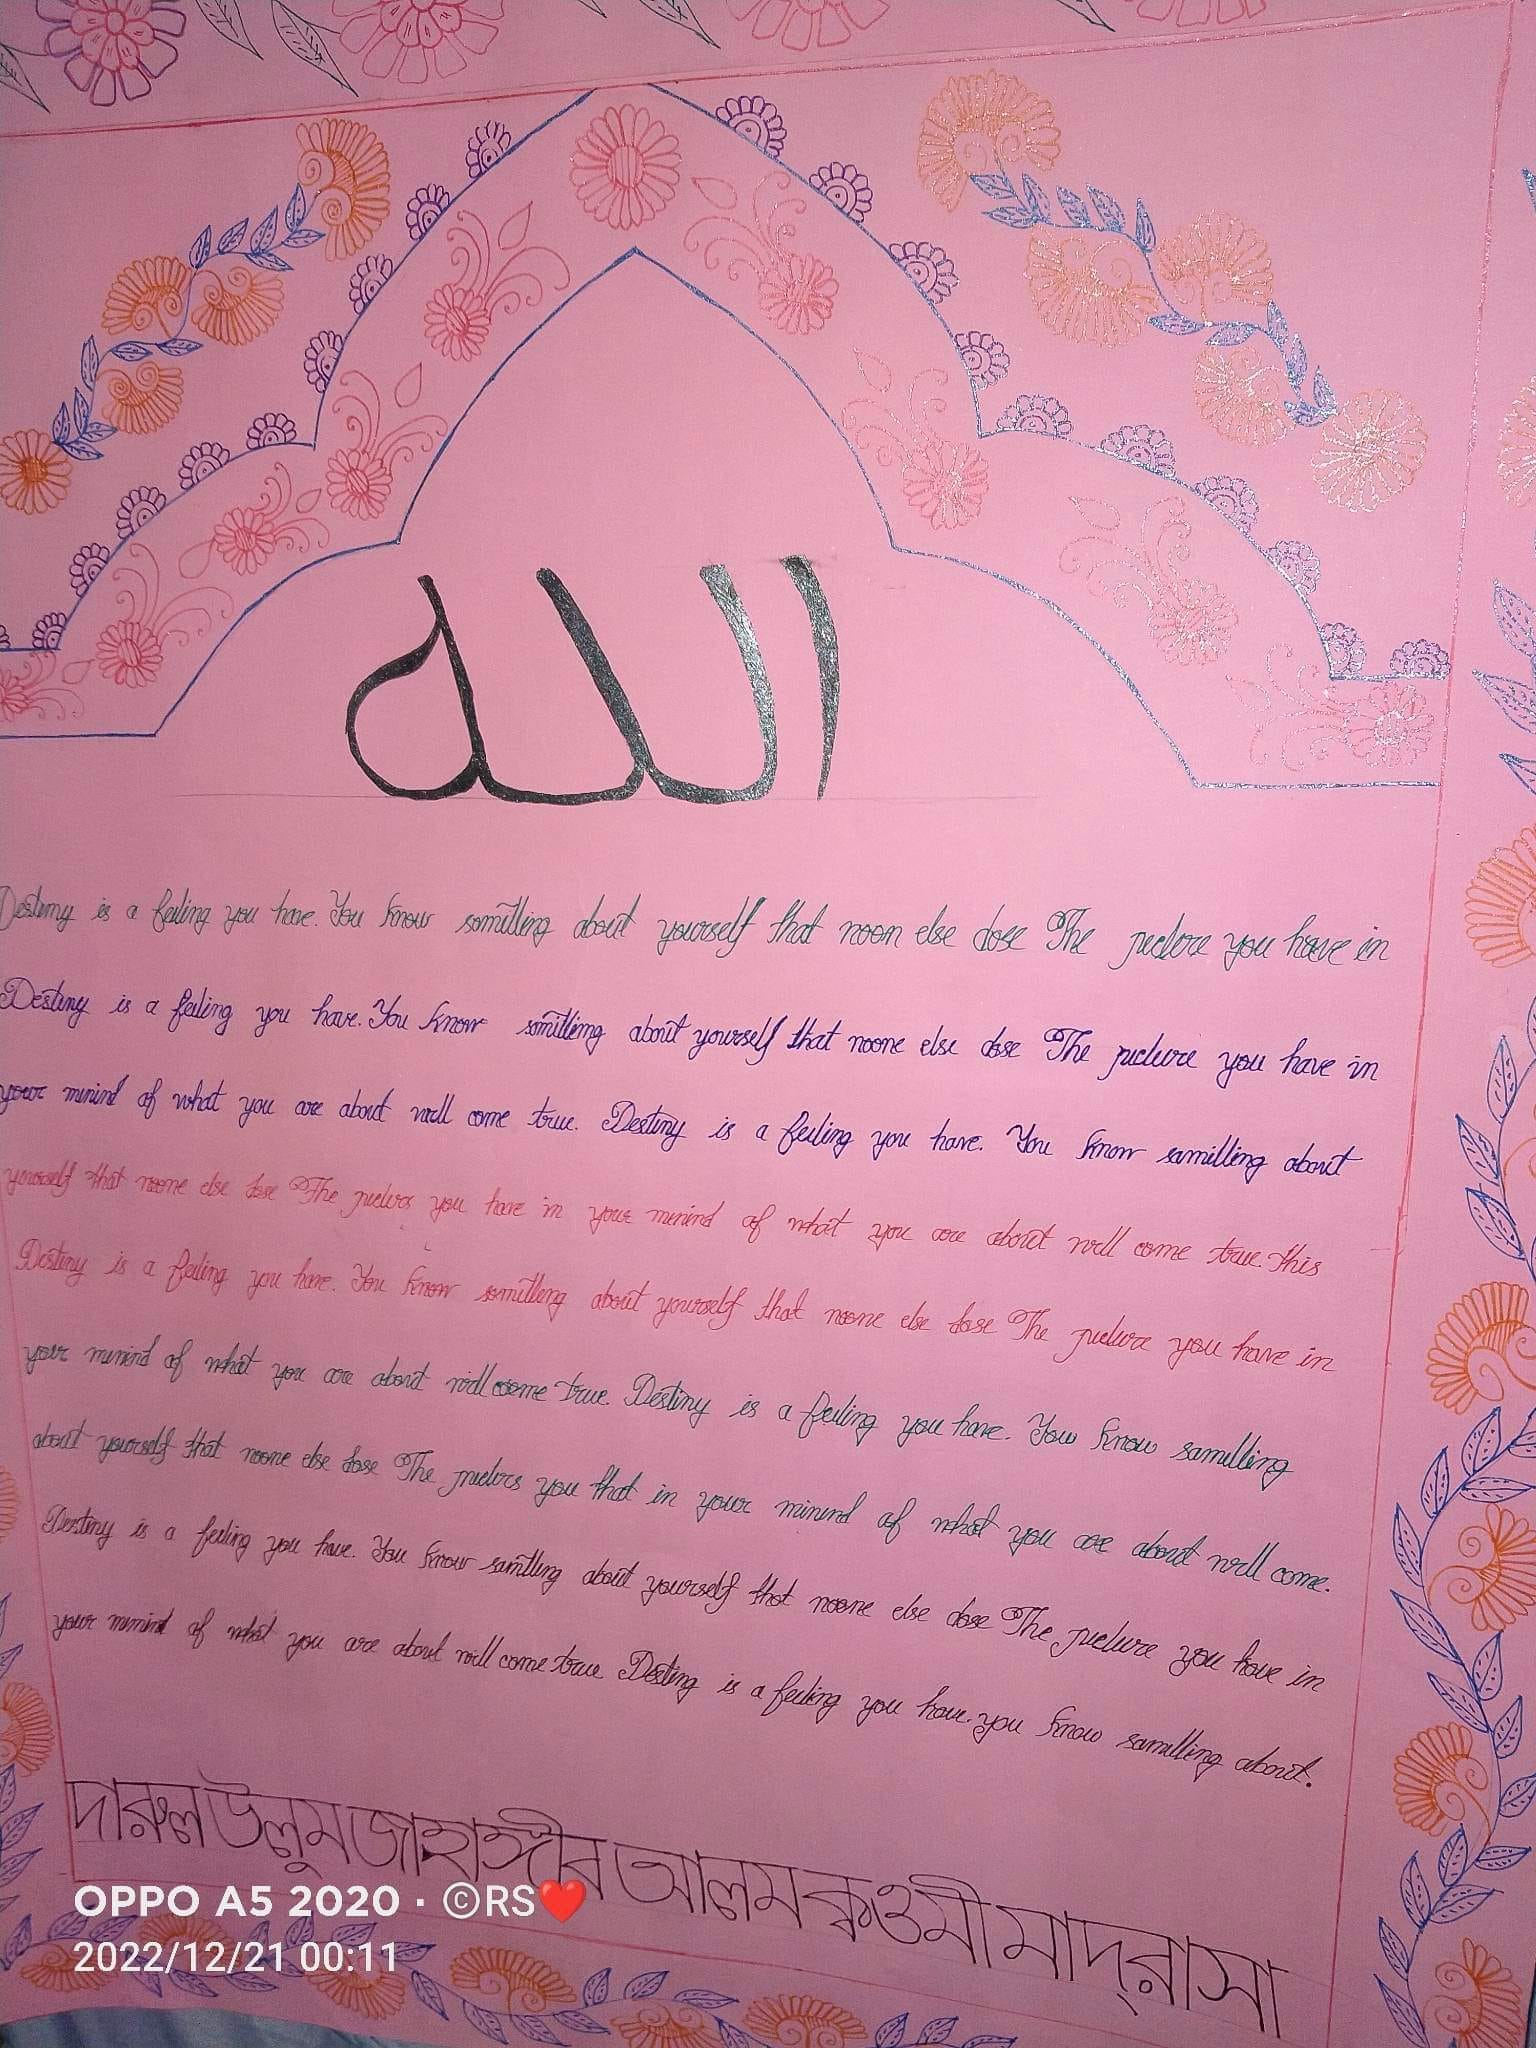 الله
Destiny is a feiling you have. You know somitling about yourself that noon else dose The picture you have in
Destiny is a feiling you have. You know somitling about yourself that noone else dose The picture you have in
your minind of what you are about will come true. Destiny is a feiling you have. You know samilling about
yourself that noone else dose The picturs you have in your minind of what you are about will come true. this
Destiny is a feiling you have. You know somitling about yourself that noone else dose The picture you have in
your minind of what you are about will come true. Destiny is a feiling you have. You know samilling
about yourself that noone else dose The picturs you that in your minind of what you are about will come.
Destiny is a feiling you have. You know samitling about yourself that noone else dose The picture you have in
your minind of what you are about will come true Destiny is a feiling you have. you know samilling about.
দারুল উলুম জাহাঙ্গীর আলম ক্বওমী মাদ্রাসা
OPPO A5 2020 · ©RS❤️
2022/12/21 00:11